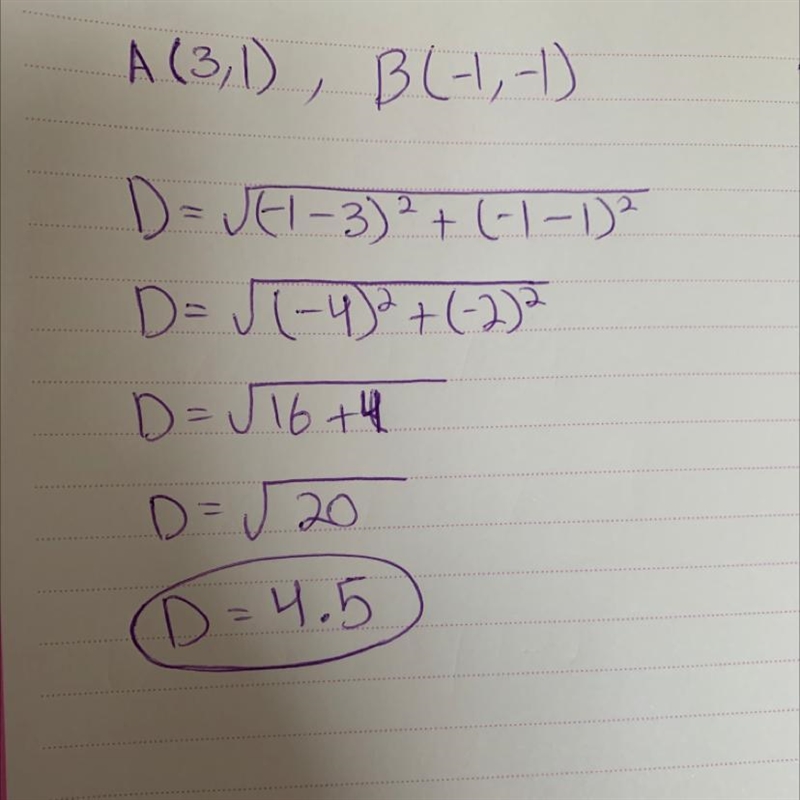 A(3,1), B(-1,-1)
D = √(-1-3)² + (-1-1)²
D = √(-4)² + (-2)²
D = √16 + 4
D = √20
D = 4.5